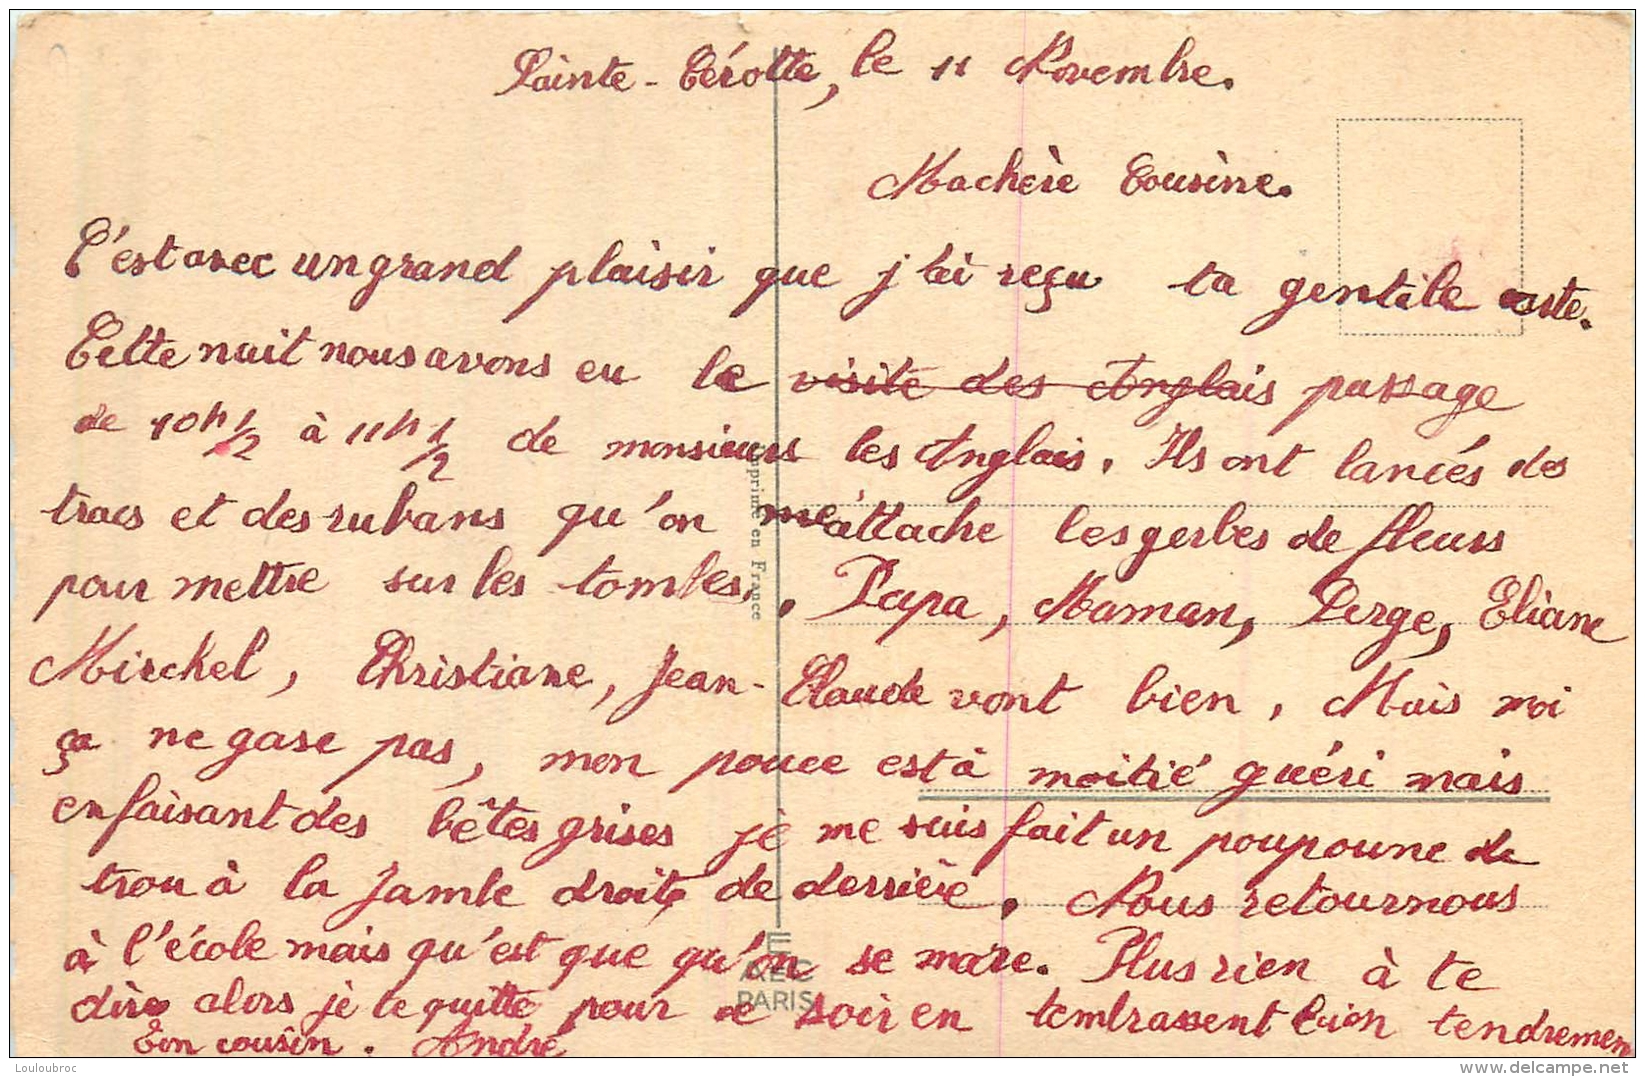 Sainte-Cérotte, le 11 Novembre.
Machère Cousine.
C'est avec un grand plaisir que j'ai reçu ta gentille carte.
Cette nuit nous avons eu le visite des Anglais passage
de 10h 1/2 à 11h 1/2 de monsieurs les Anglais. Ils ont lancés des
tracs et des rubans qu'on attache les gerbes de fleurs
pour mettre sur les tombes. Papa, Maman, Serge, Eliane
Mirckel, Christiane, Jean-Claude vont bien, Mais moi
ça ne gase pas, mon pouce est à moitié guéri mais
en faisant des bêtes grises je me suis fait un poupoune de
trou à la jambe droite de derrière. Nous retournous
à l'école mais qu'est que qu'on se mare. Plus rien à te
dire alors je te quitte pour ce soir en tembrassent bien tendremen
Ton cousin. André
Imprimé en France
AEC
PARIS
Louloubroc